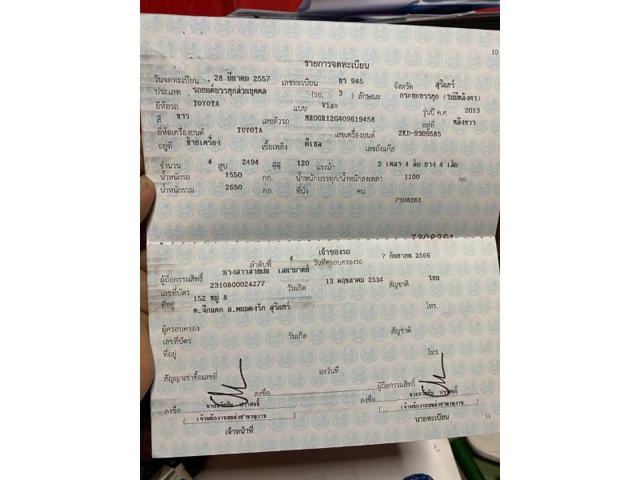 10
รายการจดทะเบียน
วันจดทะเบียน 28 มีนาคม 2557 เลขทะเบียน บร 945 จังหวัด สุรินทร์
ประเภท รถยนต์บรรทุกส่วนบุคคล (รย. 3 ) ลักษณะ กระบะบรรทุก (ไม่มีหลังคา)
ยี่ห้อรถ TOYOTA แบบ Vigo รุ่นปี ค.ศ. 2013
สี ขาว เลขตัวรถ MR0GR12G409619458 อยู่ที่
ยี่ห้อเครื่องยนต์ TOYOTA เลขเครื่องยนต์ 2KD-S309585
อยู่ที่ ซ้ายเครื่อง เชื้อเพลิง ดีเซล เลขถังแก๊ส
จำนวน 4 สูบ 2494 ซีซี 120 แรงม้า 2 เพลา 4 ล้อ ยาง 4 เส้น
น้ำหนักรถ 1550 กก. น้ำหนักบรรทุก/น้ำหนักลงเพลา 1100 กก.
น้ำหนักรวม 2650 กก. ที่นั่ง คน
7308261
7308261
เจ้าของรถ
ลำดับที่ 4 วันที่ครอบครองรถ 7 กันยายน 2566
ผู้ถือกรรมสิทธิ์ นางสาวสายฝน
เลขที่บัตร 2310800024277 วันเกิด 13 พฤษภาคม 2534 สัญชาติ ไทย
ที่อยู่ 152 หมู่ 8 โทร.
ต.จีกแดก อ.พนมดงรัก สุรินทร์
ผู้ครอบครอง
เลขที่บัตร วันเกิด สัญชาติ
ที่อยู่ โทร
สัญญาเช่าซื้อเลขที่ ลงวันที่
ลงชื่อ ผู้ถือกรรมสิทธิ์
ลงชื่อ ลงชื่อ
(เจ้าพนักงานขนส่งชำนาญงาน (เจ้าพนักงานขนส่งชำนาญงาน
เจ้าหน้าที่ นายทะเบียน
11